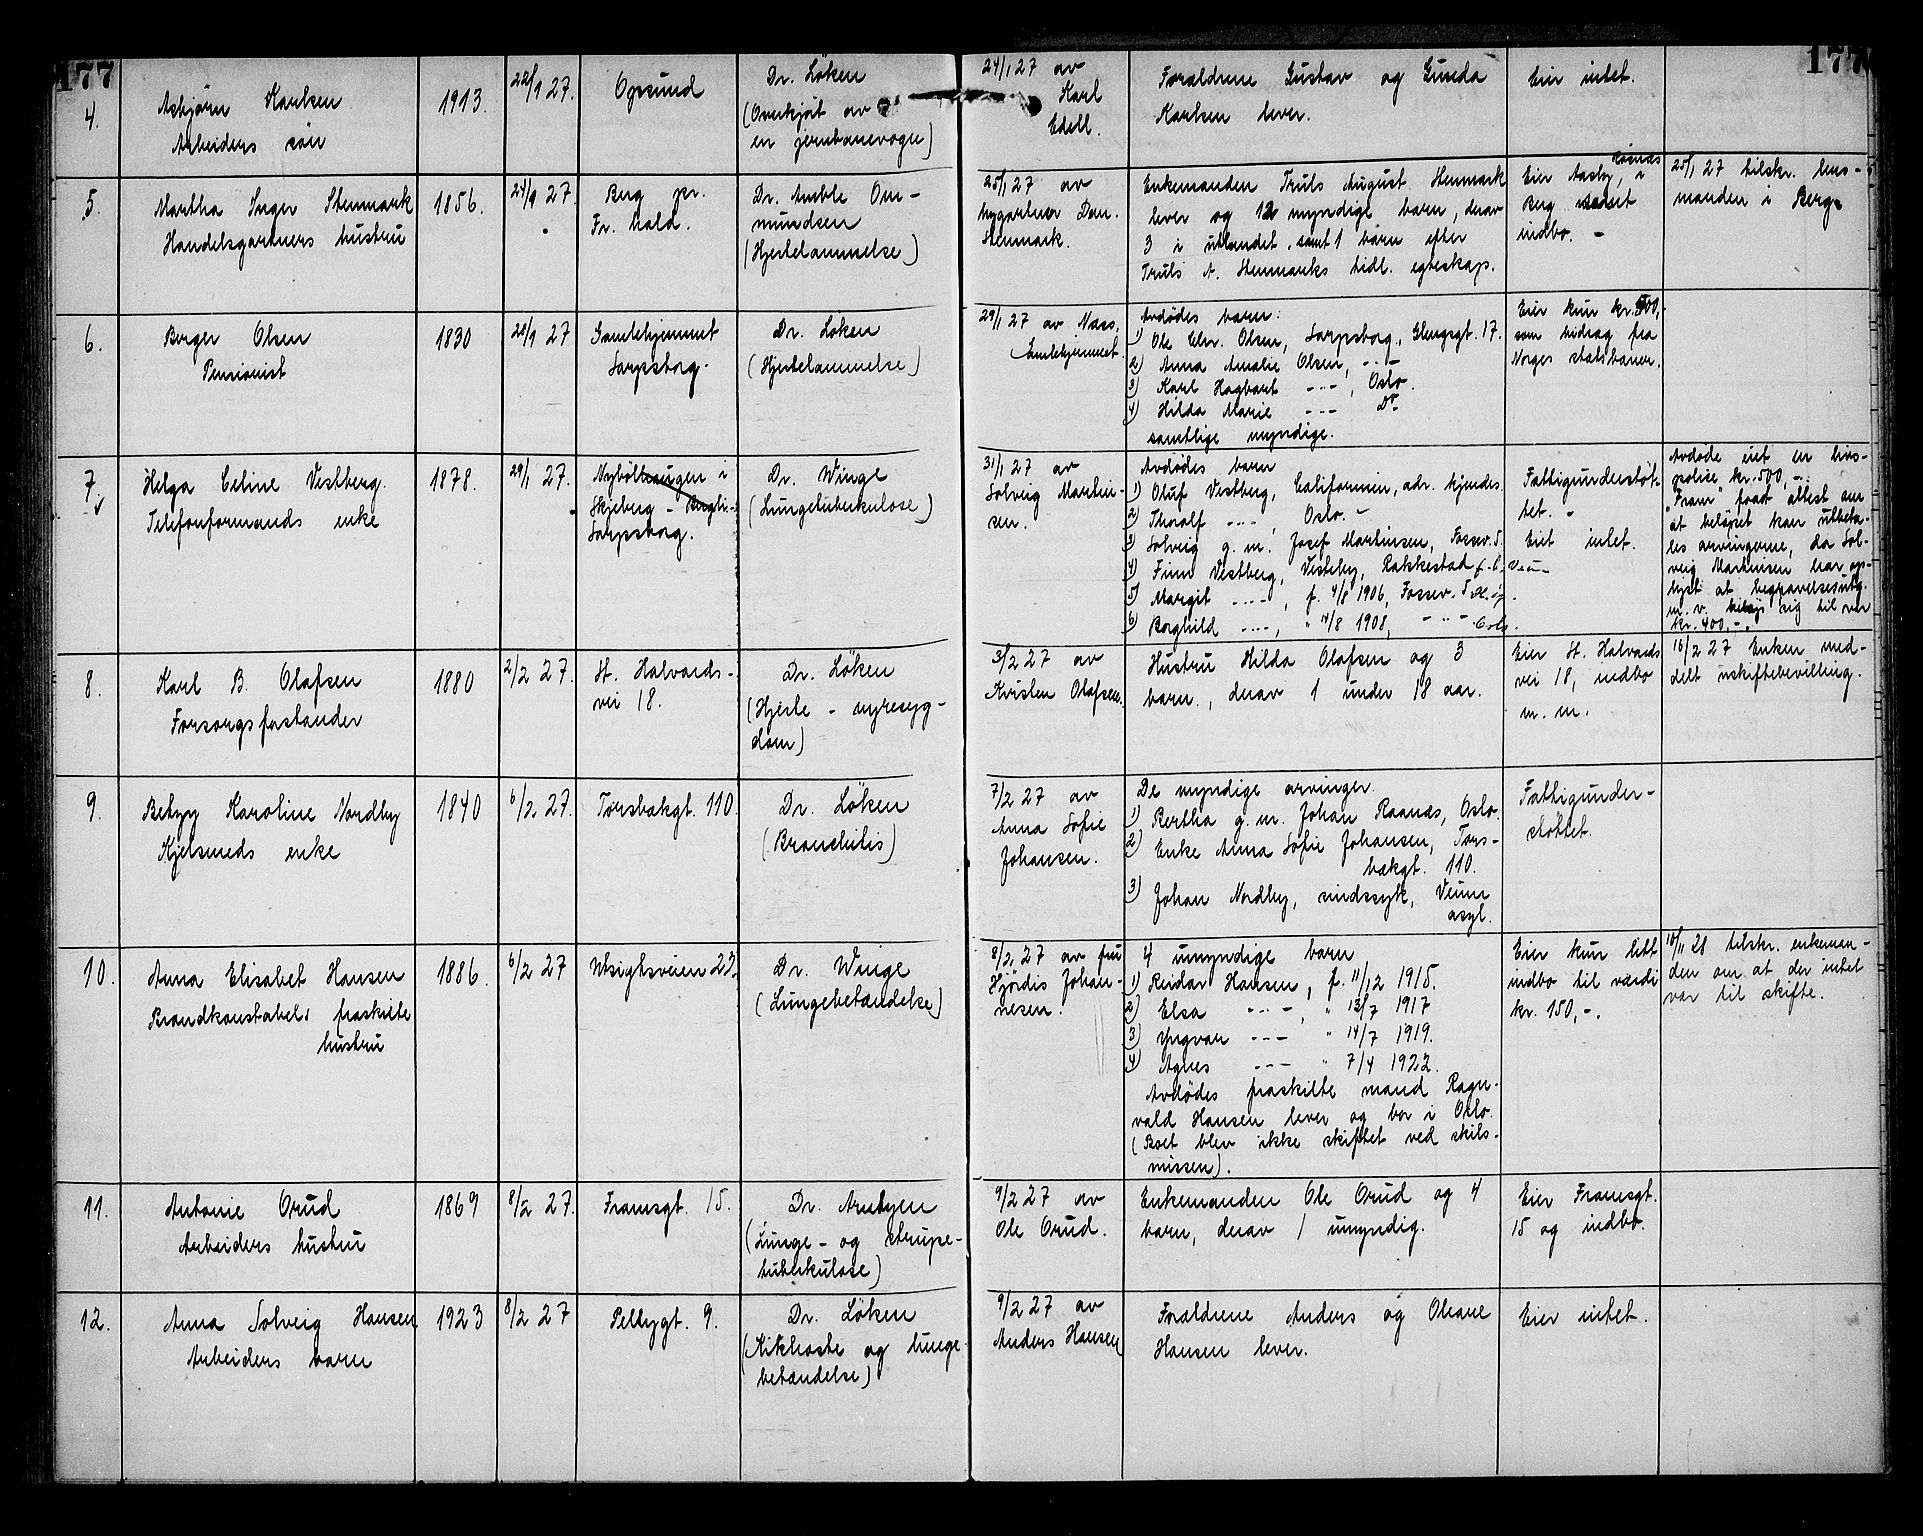 177
177
4.
Asbjørn Karlsen
Arbeiders søn
1913.
22/1 27.
Opsund
Dr. Løken
(Overkjöt av
en jernbanevogn)
24/1 27 av
Karl
Edell.
Forældrene Gustav og Gunda
Karlsen lever.
Eier intet.
5.
Martha Inger Stenmark
Handelsgartners hustru
1856.
24/1 27
Berg pr.
Fr. hald.
Dr. Amble Om-
mundsen
(Hjertelammelse)
25/1 27 av
bygartner Dan.
Stenmark.
Enkemanden Truls August Stenmark
lever og 12 myndige barn, derav
3 i utlandet, samt 1 barn efter
Truls A. Stenmarks tidl. egteskap.
Eier Aasby, i
Berg samt
indbo. -
25/1 27 tilskr. lens-
manden i Berg.
6.
Berger Olsen
Pensionist
1830
28/1 27
Gamlehjemmet
Sarpsborg.
Dr. Løken
(Hjertelammelse)
29/1 27 av Næss,
Gamlehjemmet.
Avdødes barn:
1) Ole Chr. Olsen, Sarpsborg, Glengsgt. 17.
2) Anna Amalie Olsen, -..-
3) Karl Hagbart -..-, Oslo.
4) Hilda Marie -..- Do.
samtlige myndige.
Eier kun kr. 500,
som bidrag fra
Norges statsbaner.
7
Helga Celine Vestberg
Telefonformands enke
1878.
29/1 27.
Nybölhaugen i
Skjeberg -
Sarpsborg.
Dr. Winge
(Lungetuberkulose)
31/1 27 av
Solveig Martin-
sen.
Avdødes barn
1) Oluf Vestberg, Californien, adr. kjendes.
2) Thoralf -..-, Oslo. -
3) Solveig g. m. Josef Martinsen, Fossev. 5.
4) Finn Vestberg, Vesteby, Rakkestad
5) Margit -..-, f. 4/8 1906, Fossev. 5
6) Borghild -..-, " 14/8 1908, -"- Oslo.
Fattigunderstøt-
tet. -
Eiet intet.
Avdøde eiet en livs-
polise kr. 500,-.
"Fram" faat attest om
at beløpet kan utbeta-
les arvingerne, da Sol-
veig Martinsen har op-
lyst at begravelsesutg.
m. v. beløp sig til over
kr. 400,-.
8.
Karl B. Olafsen
Forsorgsforstander
1880
2/2 27.
St. Halvards-
vei 18.
Dr. Löken
(Hjerte - nyresyg-
dom)
3/2 27 av
Kristen Olafsen.
Hustru Hilda Olafsen og 3
barn, derav 1 under 18 aar.
Eier St. Halvards
vei 18, indbo
m. m.
16/2 27 Enken med-
delt uskiftebevilling.
9.
Betzy Karoline Nordby
Gjelsmeds enke
1840
6/2 27.
Torsbakgt. 110
Dr. Löken
(Bronchitis)
7/2 27 av
Anna Sofie
Johansen.
De myndige arvinger.
1) Bertha g. m. Johan Raanås, Oslo.
2) Enke Anna Sofie Johansen, Tors-
bakgt. 110.
3) Johan Nordby, sindssyk, Veum
asyl.
Fattigunder-
støttet.
10.
Anna Elisabet Hansen
Brandkonstabels fraskilte
hustru
1886.
6/2 27
Utsigtsveien 23.
Dr. Winge
(Lungebetændelse)
8/2 27 av fru
Hjördis Johan-
nesen.
4 umyndige barn
1) Reidar Hansen, f. 11/12 1915.
2) Elsa -..-, " 13/7 1917
3) Yngvar -..- " 14/7 1919.
4) Agnes -..- " 7/4 1922.
Avdödes fraskilte mand Ragn-
vald Hansen lever og bor i Oslo.
(Boet blev ikke skiftet ved skils-
missen).
Eier kun litt
indbo til værdi
kr. 150,-.
18/11 28 tilskr. enkeman-
den om at der intet
var til skifte.
11.
Antonie Orud
Arbeiders hustru
1869
8/2 27.
Framsgt. 15.
Dr. Arntzen
(Lunge- og strupe-
tuberkulose)
9/2 27 av
Ole Orud.
Enkemanden Ole Orud og 4
barn, derav 1 umyndig.
Eier Framsgt.
15 og indbo.
12.
Anna Solveig Hansen
Arbeiders barn
1923
8/2 27
Pellygt. 9.
Dr. Löken
(Kikhoste og lunge-
betændelse)
9/2 27 av
Anders Hansen
Forældrene Anders og Oleane
Hansen lever.
Eier intet.